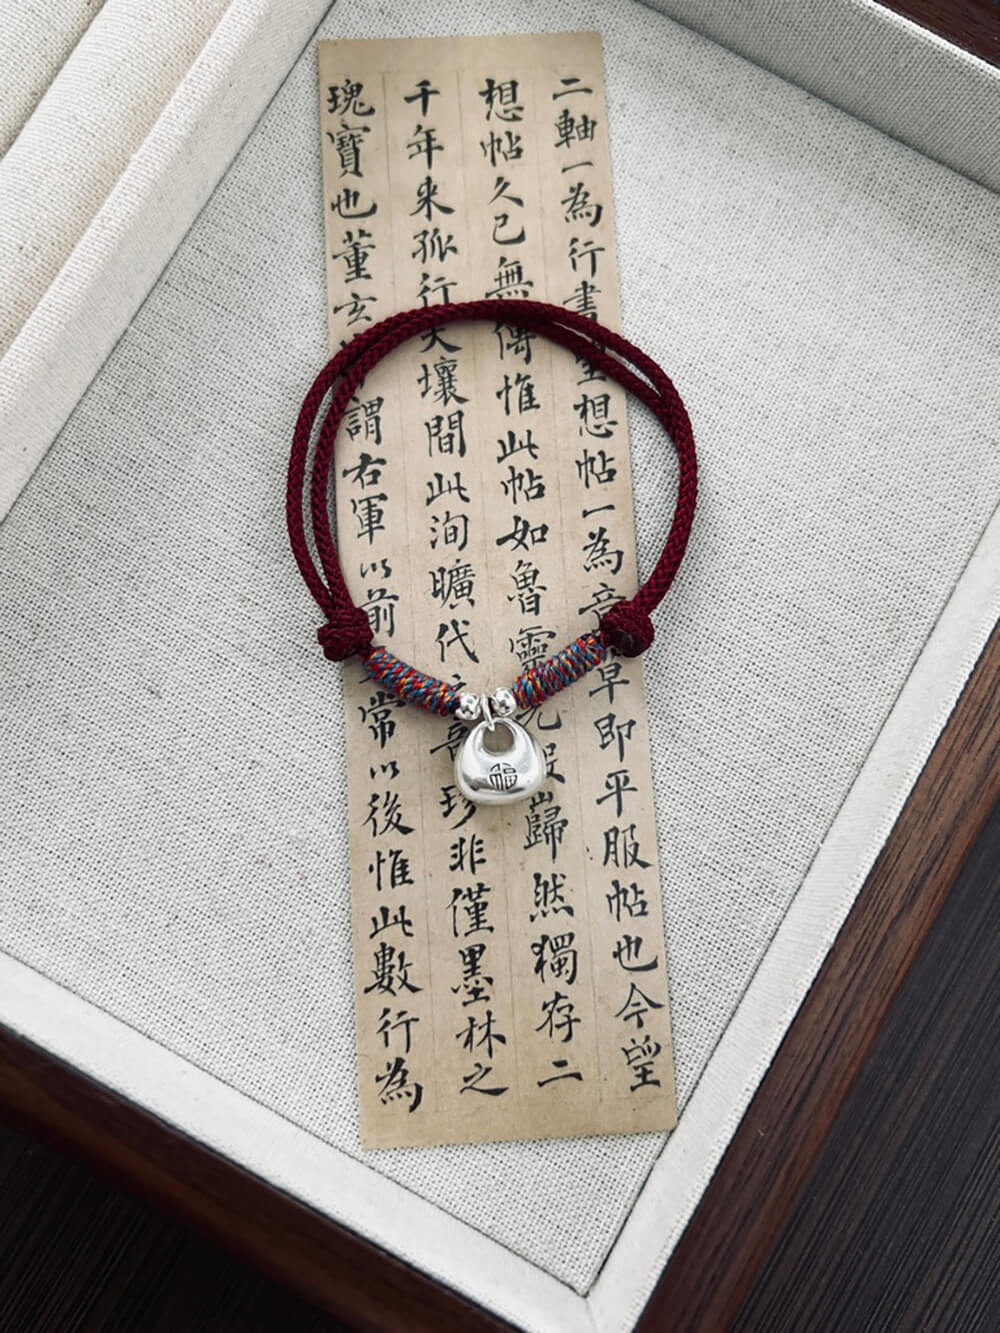 二軸一為行書望想帖一為章草即平服帖也今望
想帖久已無傳惟此帖如魯靈光殿巋然獨存二
千年来孤行天壤間此洵曠代之奇珍非僅墨林之
瑰寶也董玄宰謂右軍以前元常以後惟此數行為
福